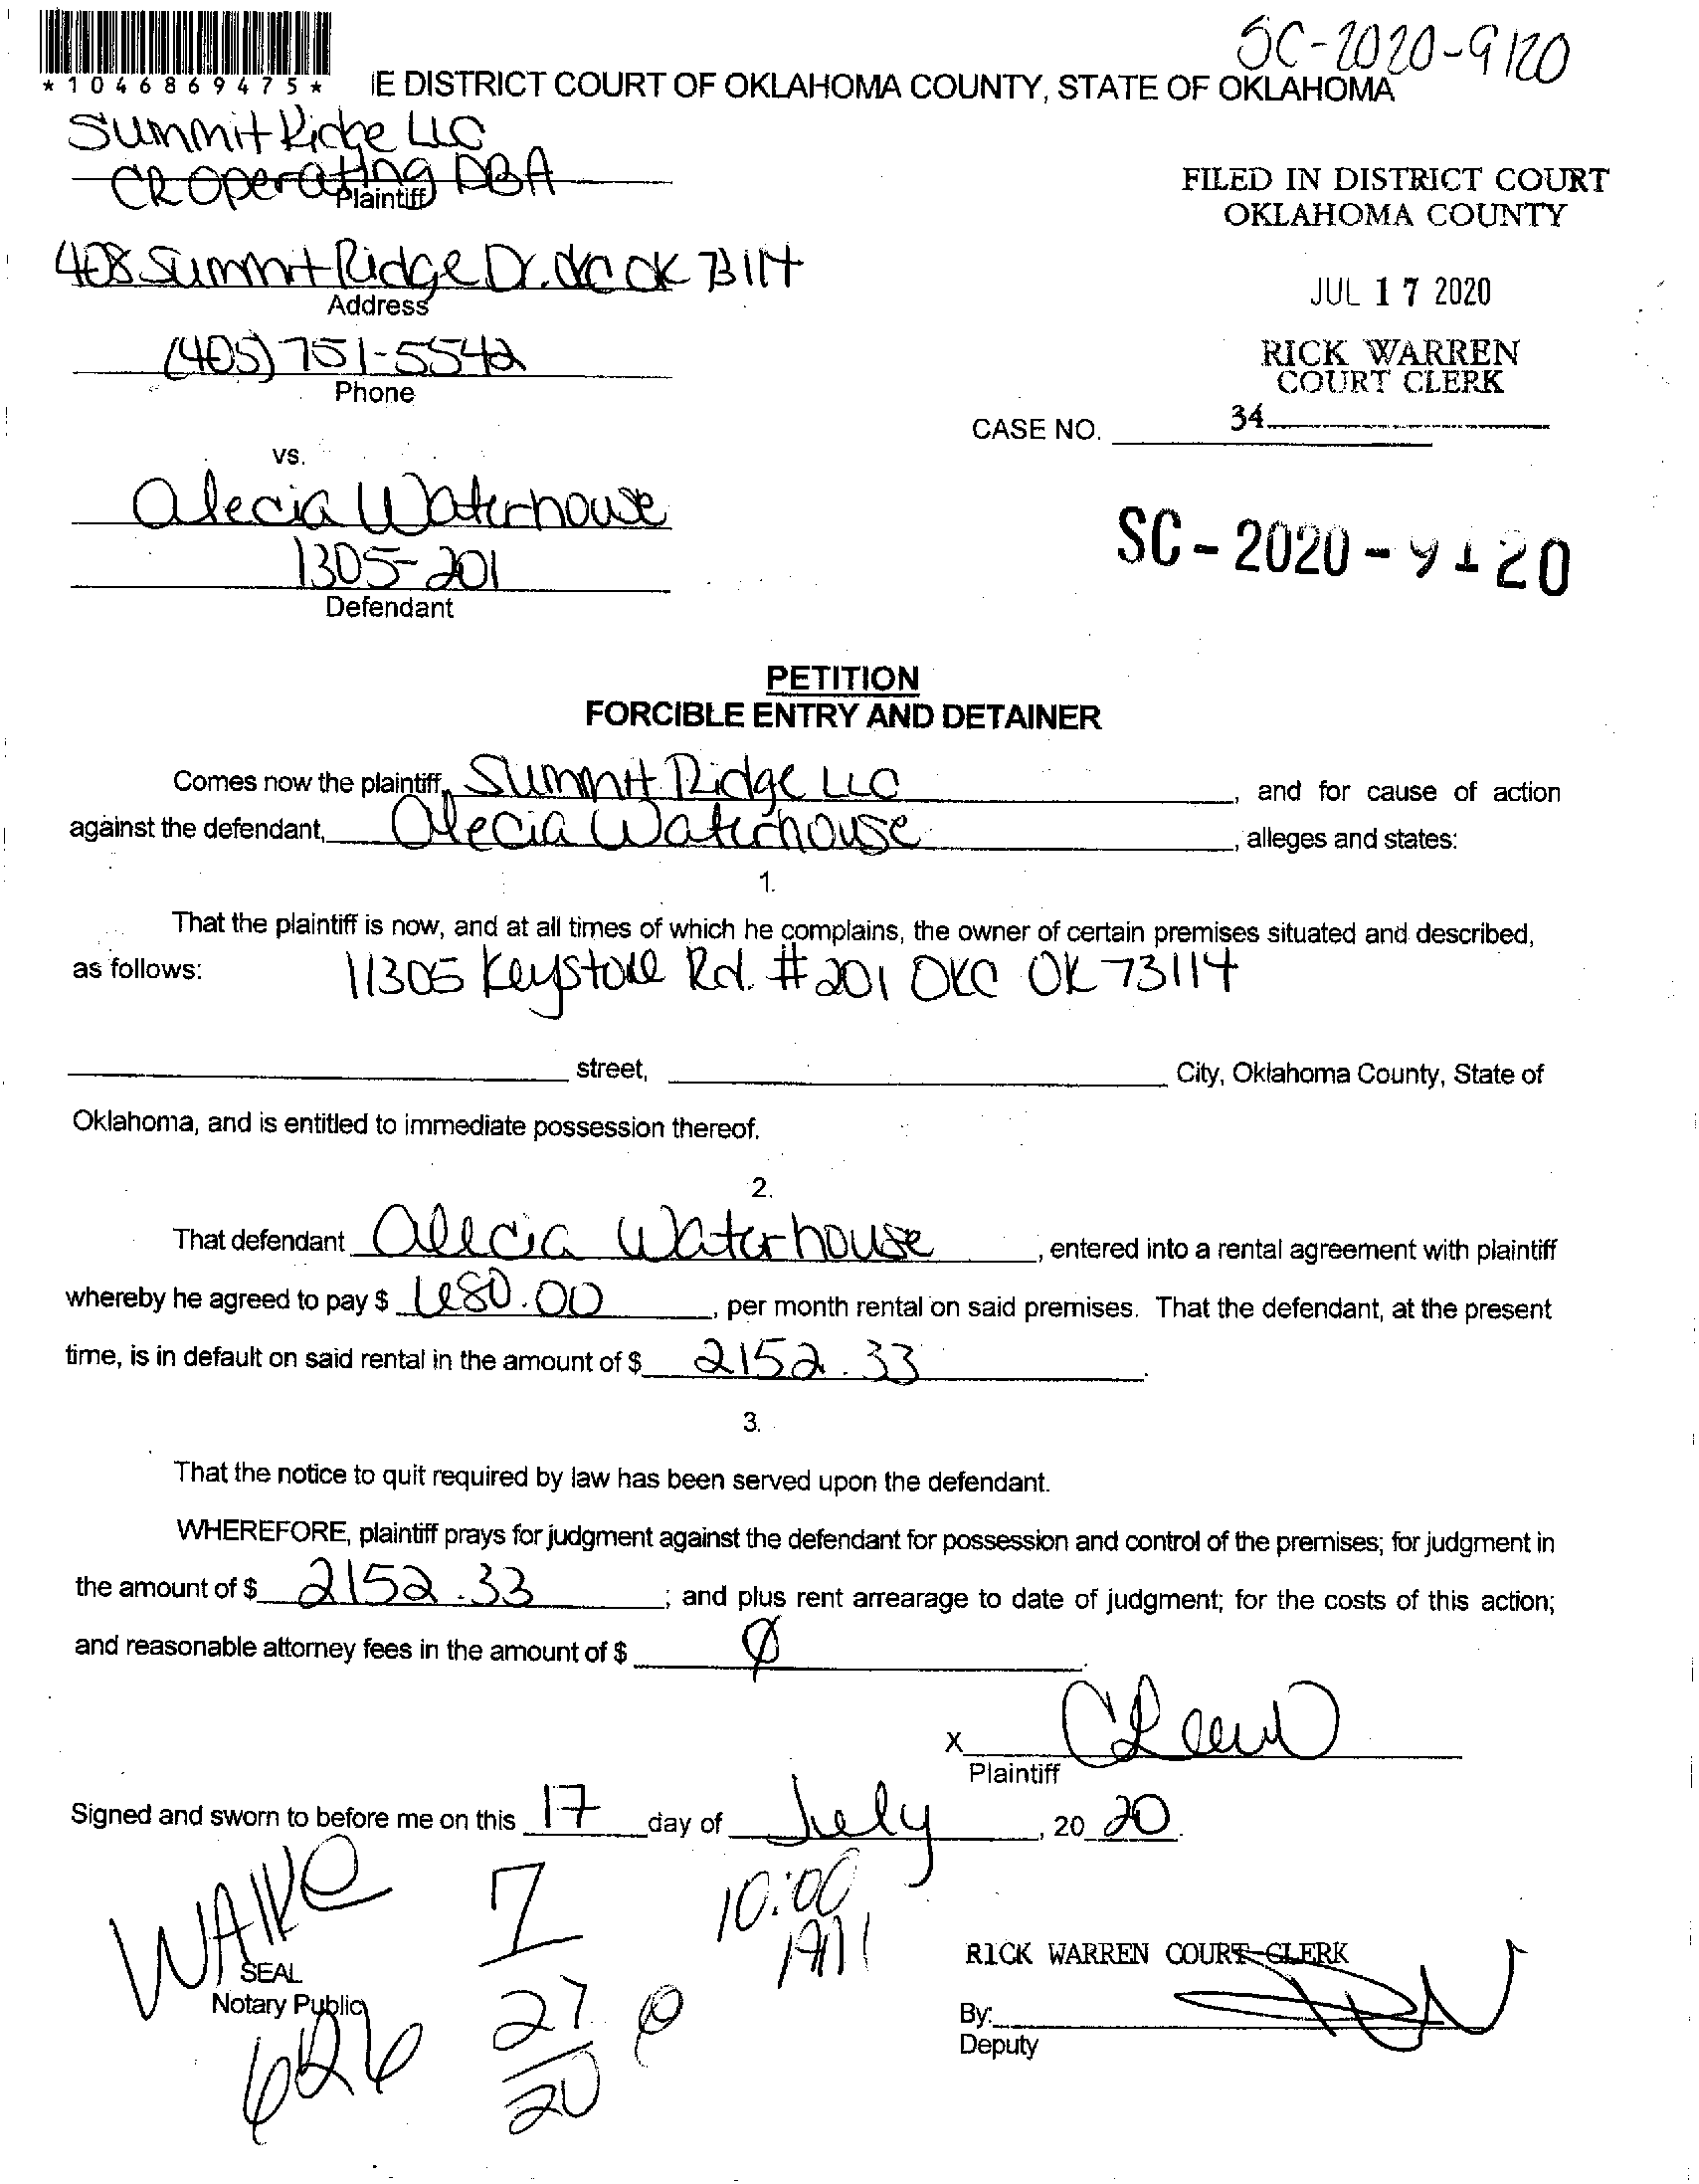 SC-2020-9120
*1046869475*
IE DISTRICT COURT OF OKLAHOMA COUNTY, STATE OF OKLAHOMA
Summit Ridge LLC
CR Operating DBA
Plaintiff
FILED IN DISTRICT COURT
OKLAHOMA COUNTY
408 Summit Ridge Dr. OKC OK 73114
Address
JUL 17 2020
(405) 751-5542
Phone
RICK WARREN
COURT CLERK
34
CASE NO.
vs.
Alecia Waterhouse
1305-201
Defendant
SC-2020-9120
PETITION
FORCIBLE ENTRY AND DETAINER
Comes now the plaintiff, Summit Ridge LLC, and for cause of action
against the defendant, Alecia Waterhouse, alleges and states:
1.
That the plaintiff is now, and at all times of which he complains, the owner of certain premises situated and described,
as follows: 11305 Keystone Rd. #201 OKC OK 73114
street, City, Oklahoma County, State of
Oklahoma, and is entitled to immediate possession thereof.
2.
That defendant Alecia Waterhouse, entered into a rental agreement with plaintiff
whereby he agreed to pay $ 680.00, per month rental on said premises. That the defendant, at the present
time, is in default on said rental in the amount of $ 2152.33.
3.
That the notice to quit required by law has been served upon the defendant.
WHEREFORE, plaintiff prays for judgment against the defendant for possession and control of the premises; for judgment in
the amount of $ 2152.33; and plus rent arrearage to date of judgment; for the costs of this action;
and reasonable attorney fees in the amount of $ Ø.
X
Plaintiff
Signed and sworn to before me on this 17 day of July, 2020.
7
27
20
@
10:00
AM
SEAL
Notary Public
626
RICK WARREN COURT CLERK
By:
Deputy